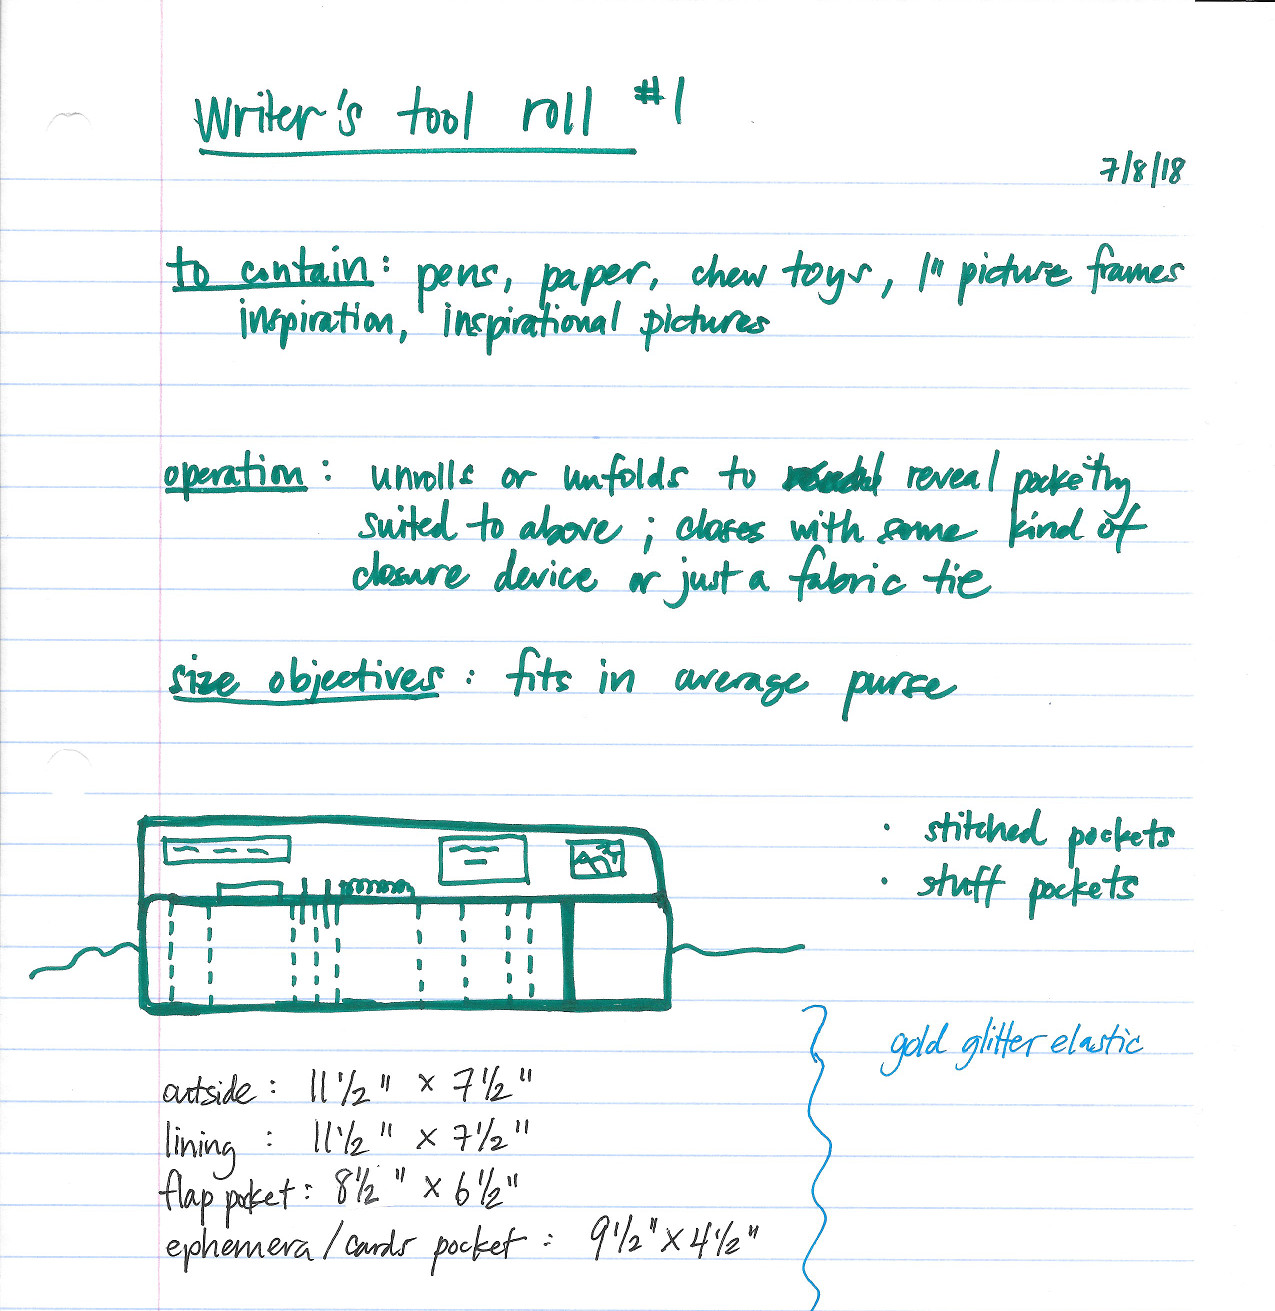 Writer's tool roll #1
7/8/18
to contain: pens, paper, chew toys, 1" picture frames
inspiration, inspirational pictures
operation: unrolls or unfolds to reveal pocketry
suited to above; closes with some kind of
closure device or just a fabric tie
size objectives: fits in average purse
· stitched pockets
· stuff pockets
gold glitter elastic
outside: 11 1/2" x 7 1/2"
lining: 11 1/2" x 7 1/2"
flap pocket: 8 1/2" x 6 1/2"
ephemera/cards pocket: 9 1/2" x 4 1/2"